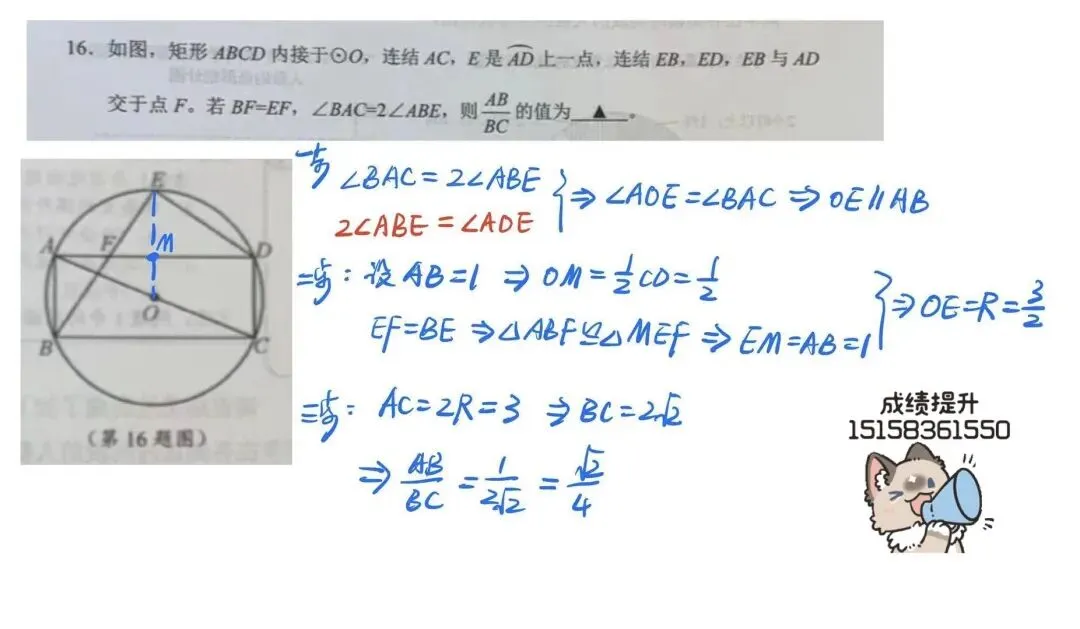 16. 如图，矩形 ABCD 内接于⊙O，连结 AC，E 是 AD 上一点，连结 EB，ED，EB 与 AD
交于点 F。若 BF=EF，∠BAC=2∠ABE，则 AB/BC 的值为 ▲ 。
一步
∠BAC = 2∠ABE
2∠ABE = ∠AOE
⇒ ∠AOE = ∠BAC ⇒ OE∥AB
二步: 设 AB=1 ⇒ OM = 1/2 CD = 1/2
EF=BE ⇒ △ABF≌△MEF ⇒ EM=AB=1
⇒ OE=R=3/2
三步: AC=2R=3 ⇒ BC=2√2
⇒ AB/BC = 1/2√2 = √2/4
E
A F M D
O
B C
(第 16 题图)
成绩提升
15158361550